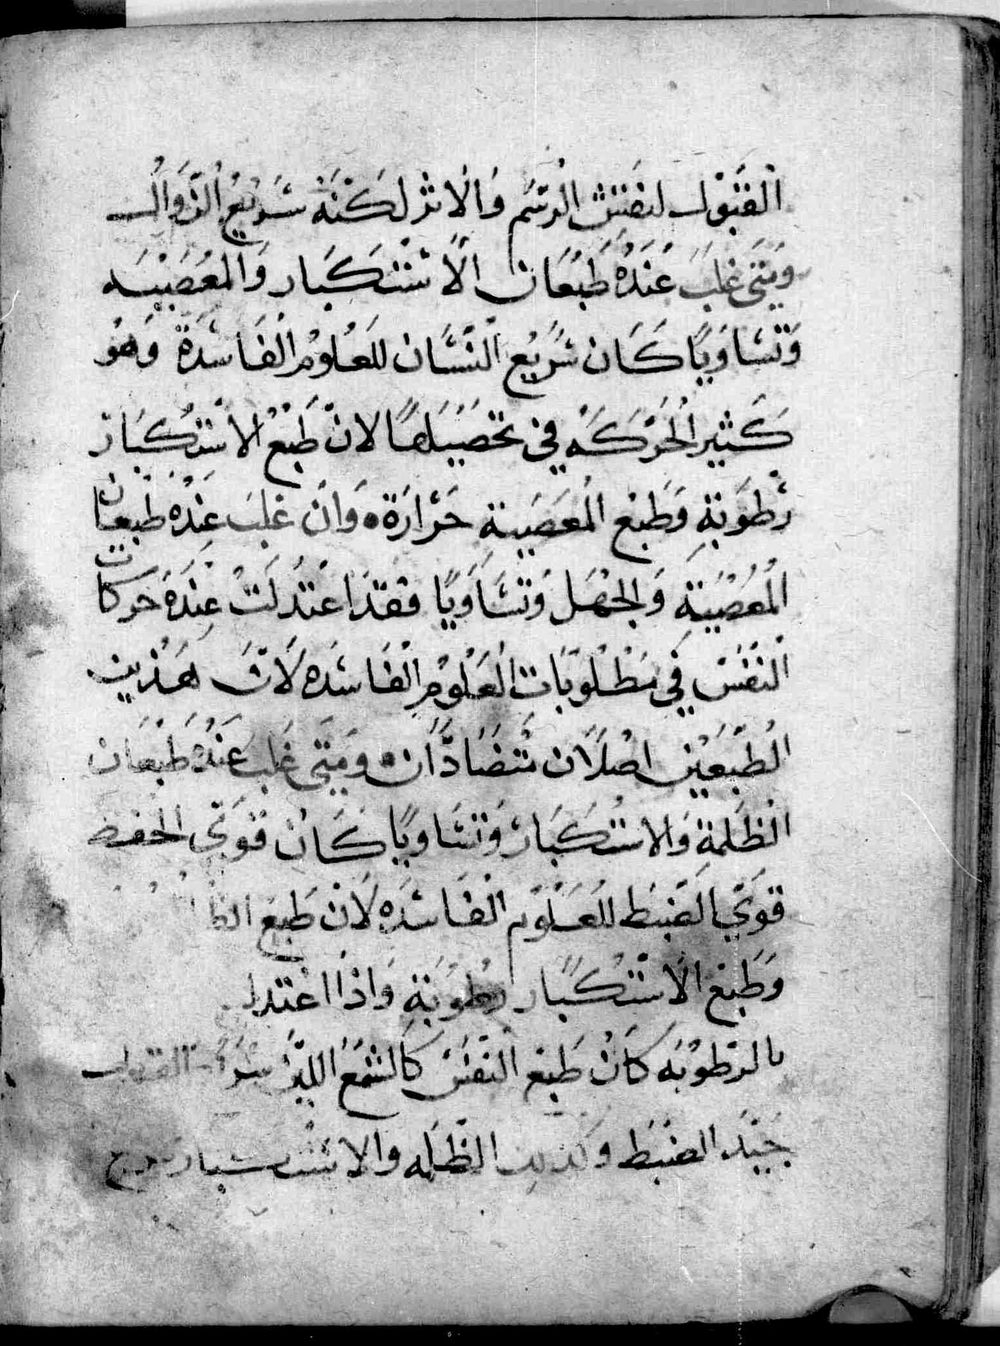 القبول لنقش الرسم والاثر لكنه سريع الزوال
ومتى غلب عنده طبعان الاستكبار والمعصيه
وتساويا كان سريع النسيان للعلوم الفاسدة وهو
كثير الحركه في تحصيلها لان طبع الاستكبار
رطوبة وطبع المعصية حرارة وان غلب عنده طبعان
المعصية والجهل وتساويا فقد اعتدلت عنده حركات
النفس في مطلوبات العلوم الفاسده لان هذين
الطبعين اصلان متضادان ومتى غلب عنده طبعان
الظلمة والاستكبار وتساويا كان قوي الحفظ
قوي الضبط للعلوم الفاسده لان طبع
وطبع الاستكبار رطوبة واذا اعتدل
بالرطوبه كان طبع النفس كالشمع اللين القبول
جيد الضبط وكذلك الظلمه والاستكبار